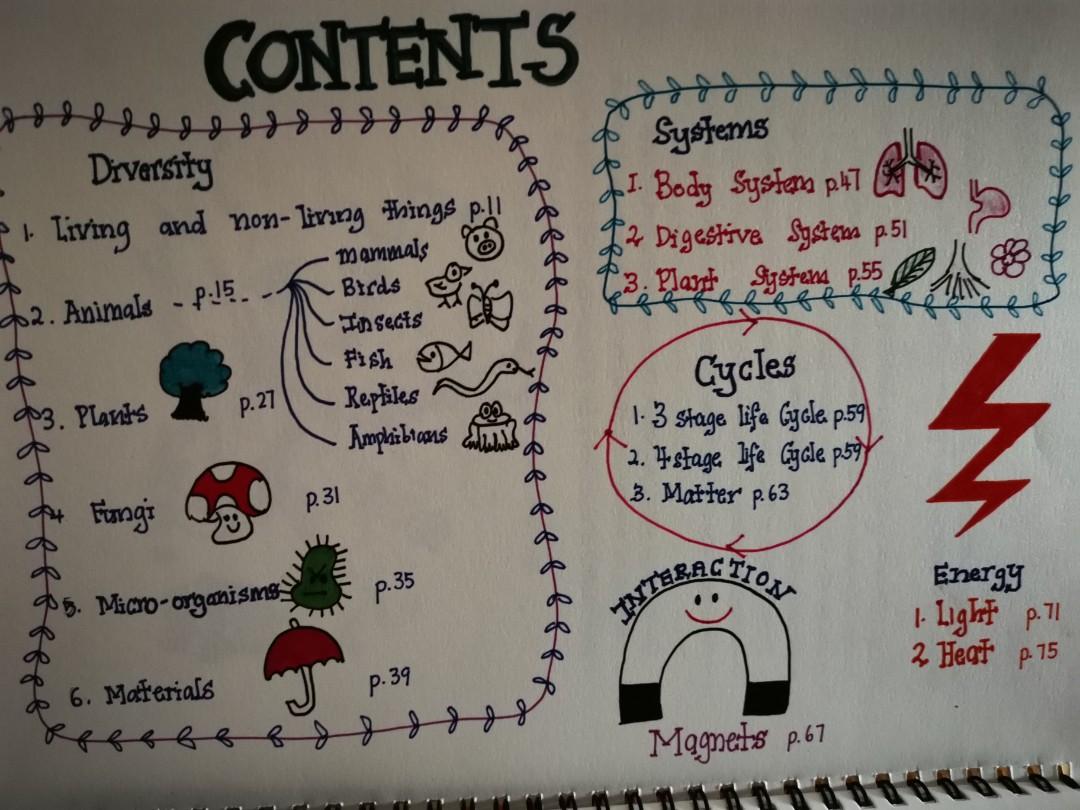 CONTENTS
Diversity
1. Living and non-living things p.11
2. Animals p.15
mammals
Birds
Insects
Fish
Reptiles
Amphibians
3. Plants p.27
4 Fungi p.31
5. Micro-organisms p.35
6. Materials p.39
Systems
1. Body System p.47
2 Digestive System p.51
3. Plant System p.55
Cycles
1. 3 stage life Cycle p.59
2. 4 stage life Cycle p.59
3. Matter p.63
INTERACTION
Magnets p.67
Energy
1. Light p.71
2 Heat p.75